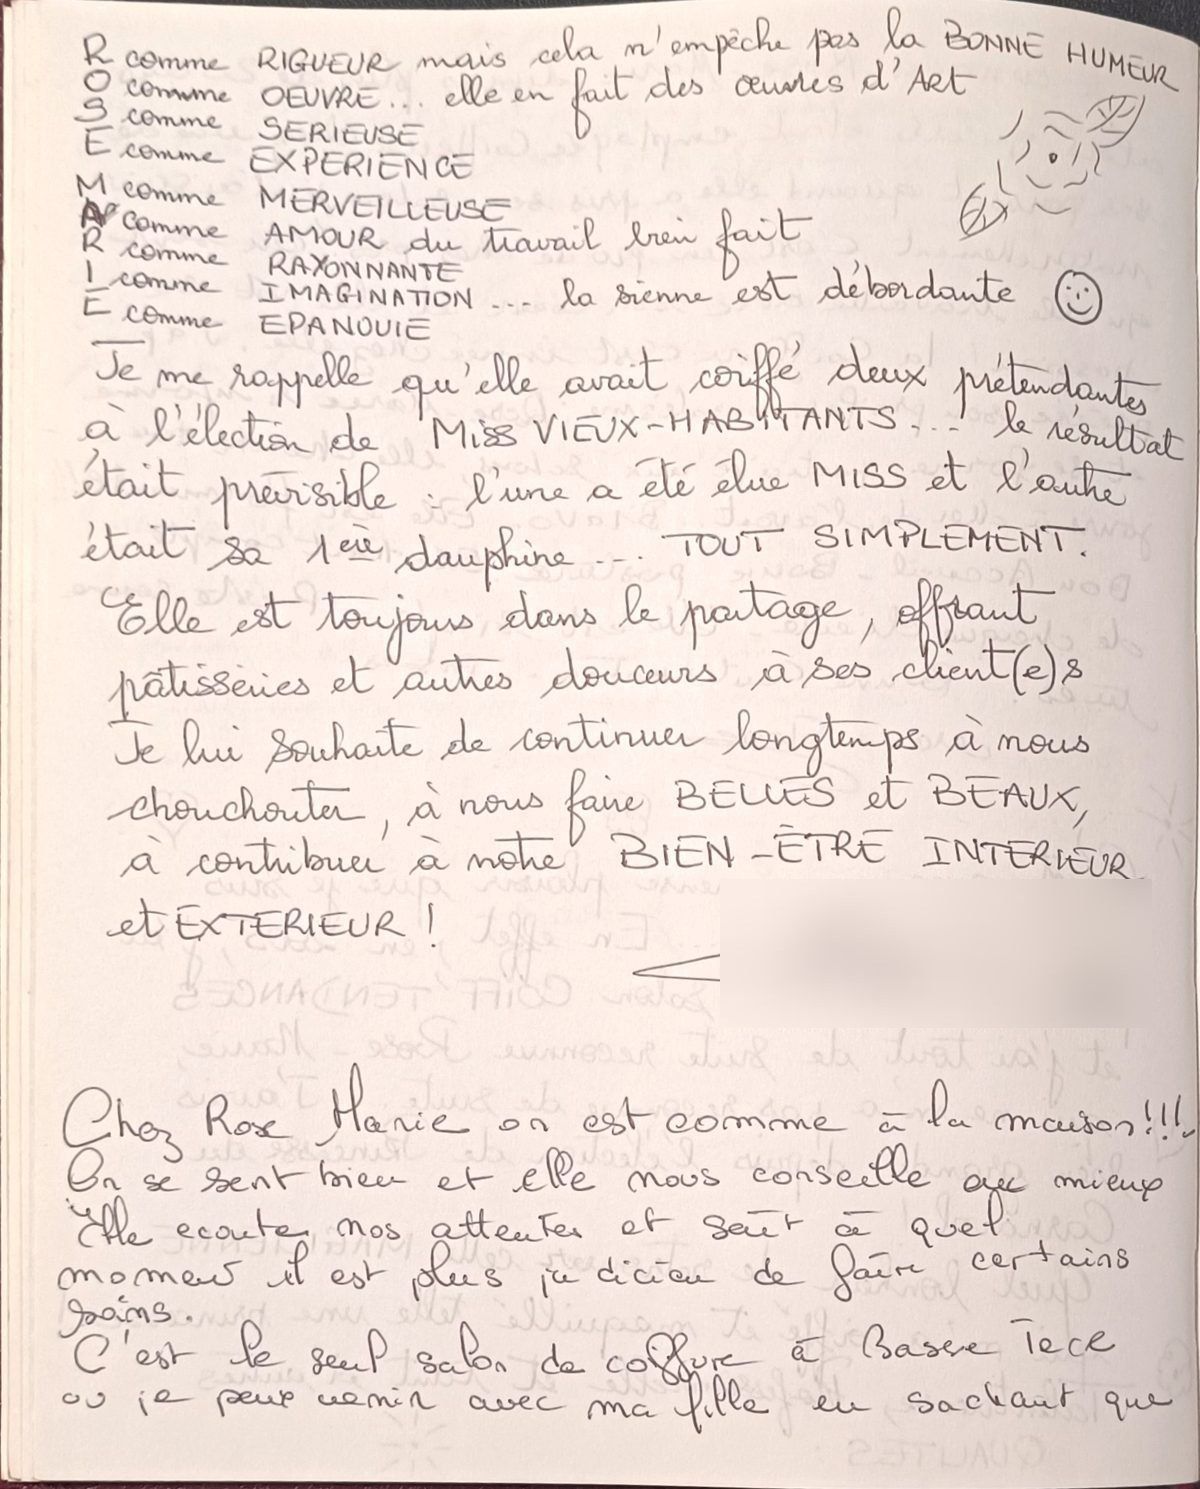 R comme RIGUEUR mais cela n'empêche pas la BONNE HUMEUR
O comme OEUVRE... elle en fait des œuvres d'Art
S comme SERIEUSE
E comme EXPERIENCE
M comme MERVEILLEUSE
A comme AMOUR du travail bien fait
R comme RAYONNANTE
I comme IMAGINATION... la sienne est débordante
E comme EPANOUIE
Je me rappelle qu'elle avait coiffé deux prétendantes
à l'élection de MISS VIEUX-HABITANTS... le résultat
était prévisible : l'une a été élue MISS et l'autre
était sa 1ère dauphine... TOUT SIMPLEMENT.
Elle est toujours dans le partage, offrant
pâtisseries et autres douceurs à ses client(e)s
Je lui souhaite de continuer longtemps à nous
chouchouter, à nous faire BELLES et BEAUX,
à contribuer à notre BIEN-ÊTRE INTERIEUR
et EXTERIEUR !
Chez Rose Marie on est comme à la maison!!!
On se sent bien et elle nous conseille au mieux
Elle ecoute nos attentes et sait à quel
moment il est plus judicieu de faire certains
soins.
C'est le seul salon de coiffure à Basse Terre
ou je peux venir avec ma fille en sachant que